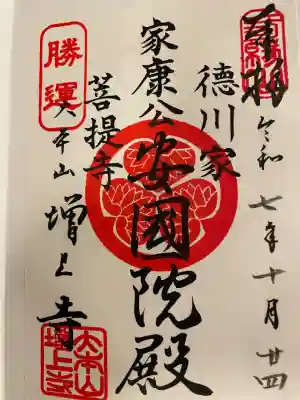 奉拝
令和七年十月廿四
徳川家
家康公安國院殿
菩提寺
勝運
大本山増上寺